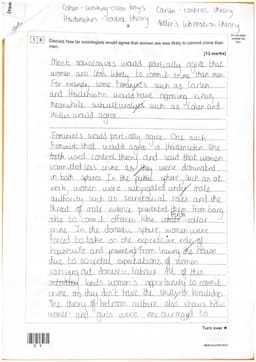 Cohen - working-class boys
Heidensohn - control theory
Adler's liberation theory
Discuss how far sociologists would agree that women are less likely to commit crime than men.
[12 marks]
Most sociologists would partially agree that
women are less likely to commit crime than men.
For example, some feminists such as Carlen
and Heidensohn would have opposing views.
Meanwhile subculturalists such as Cohen and
Willis would agree.
Feminists would partially agree. One such
feminist that would agree is Heidensohn. She
used control theory and said that women
committed less crime as they were dominated
in both spheres. In the public sphere, such as at
work, women were subjugated under male
authority such as secretarial roles and the
threat of male violence prevented them from being
able to commit offences like collar
crime. In the domestic sphere, women were
forced to take on the expressive role of
housewife and prevented from leaving the house
due to societal expectations of women
carrying out domestic labour. All of this
limits women's opportunity to commit
crime as they don't have the skills or knowledge.
The theory of bedroom culture also shows how
women and girls were encouraged to
Turn over